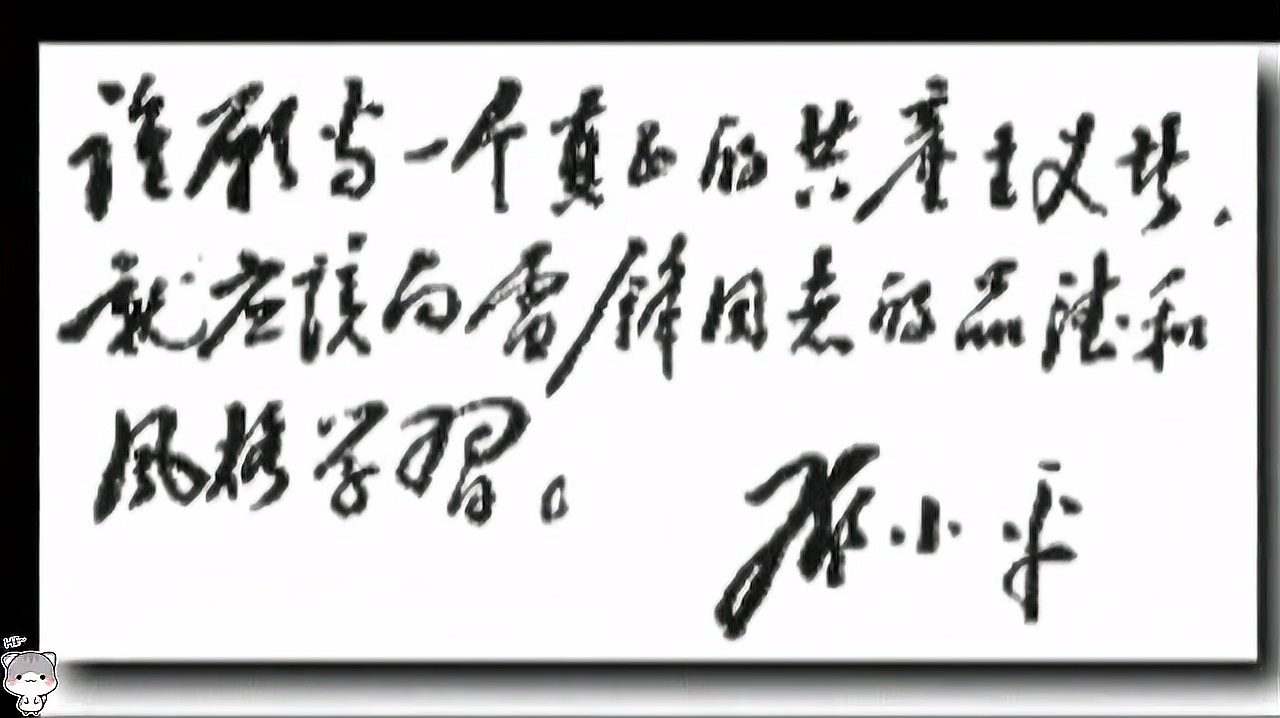 谁愿当一个真正的共产主义者，
就应该向雷锋同志的品德和
风格学习。
邓小平
Hi~